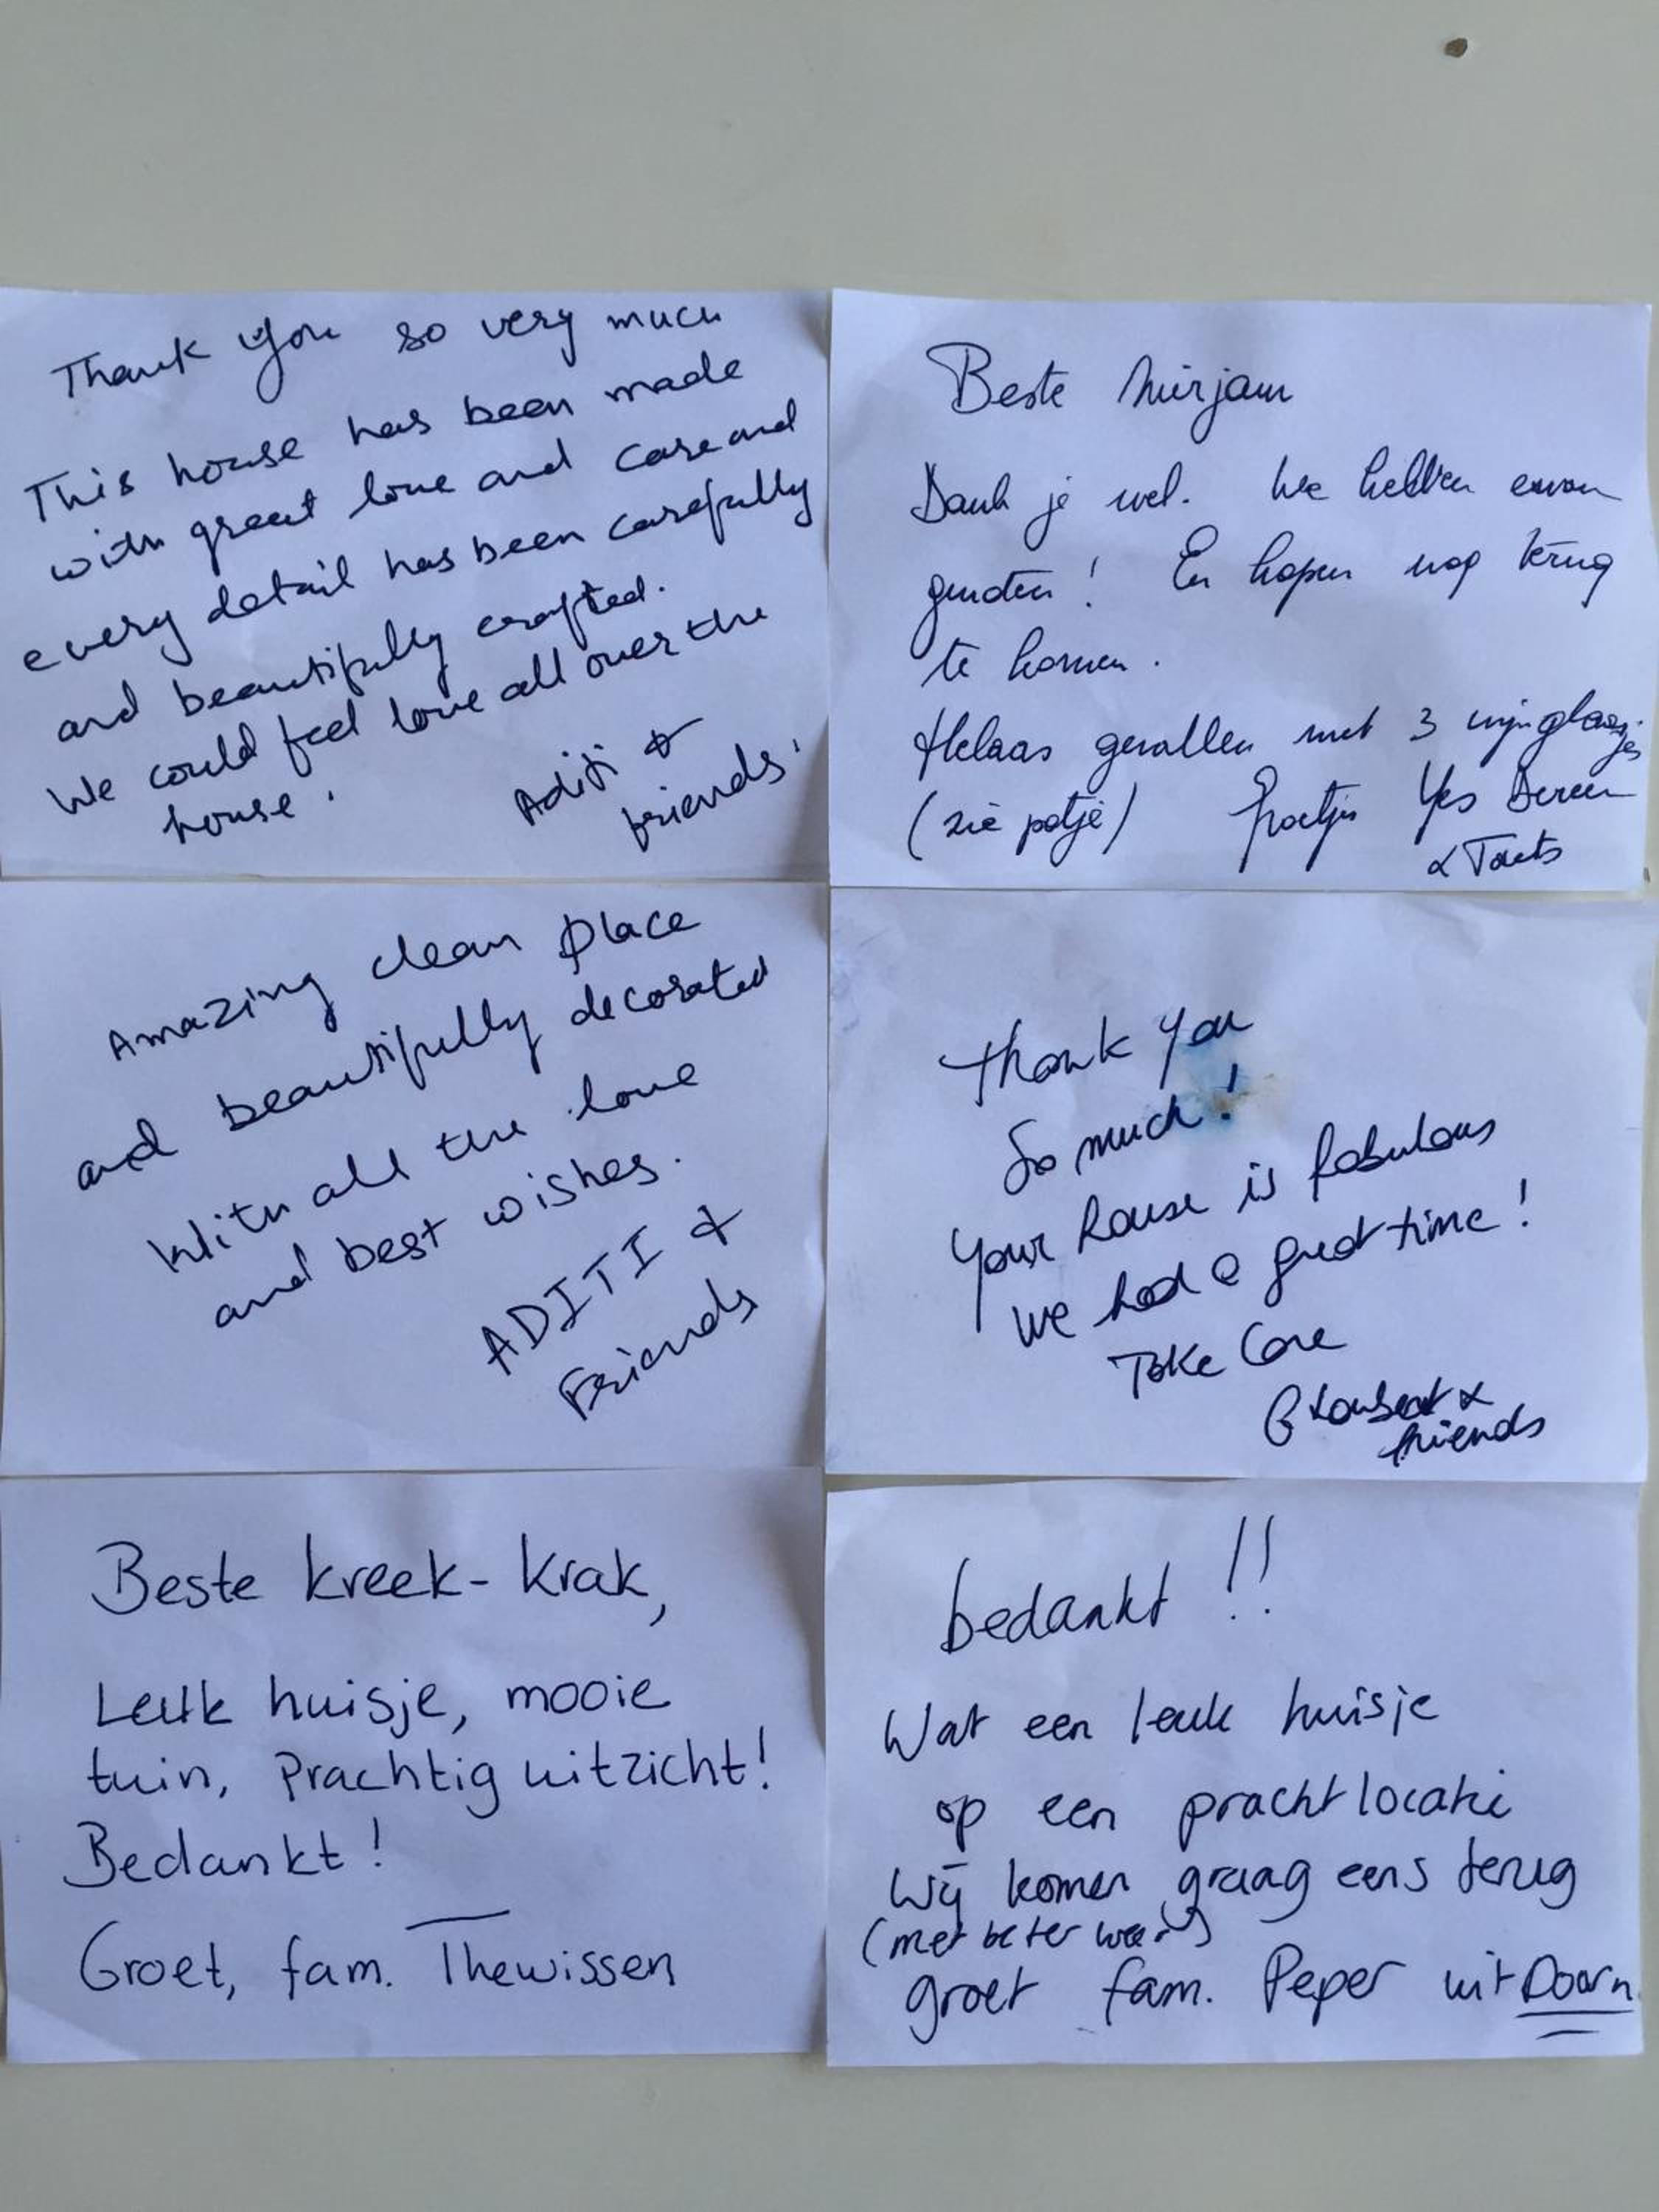 Thank you so very much
This house has been made
with great love and care and
every detail has been carefully
and beautifully crafted.
We could feel love all over the
house.
Aditi &
friends.
Beste Mirjam
Dank je wel. We hebben ervan
genoten! En hopen nog terug
te komen.
Helaas gevallen met 3 wijnglaasjes
(zie potje) Groetjes
& Toets
Amazing clean place
and beautifully decorated
With all the love
and best wishes.
ADITI &
Friends
Thank You
So much!
Your house is fabulous
We had a great time!
Take Care
&
friends
Beste kreek-krak,
Leuk huisje, mooie
tuin, Prachtig uitzicht!
Bedankt!
Groet, fam. Thewissen
bedankt !!
Wat een leuk huisje
op een prachtlocatie
Wij komen graag eens terug
(met beter weer)
groet fam. Peper uit Doorn.